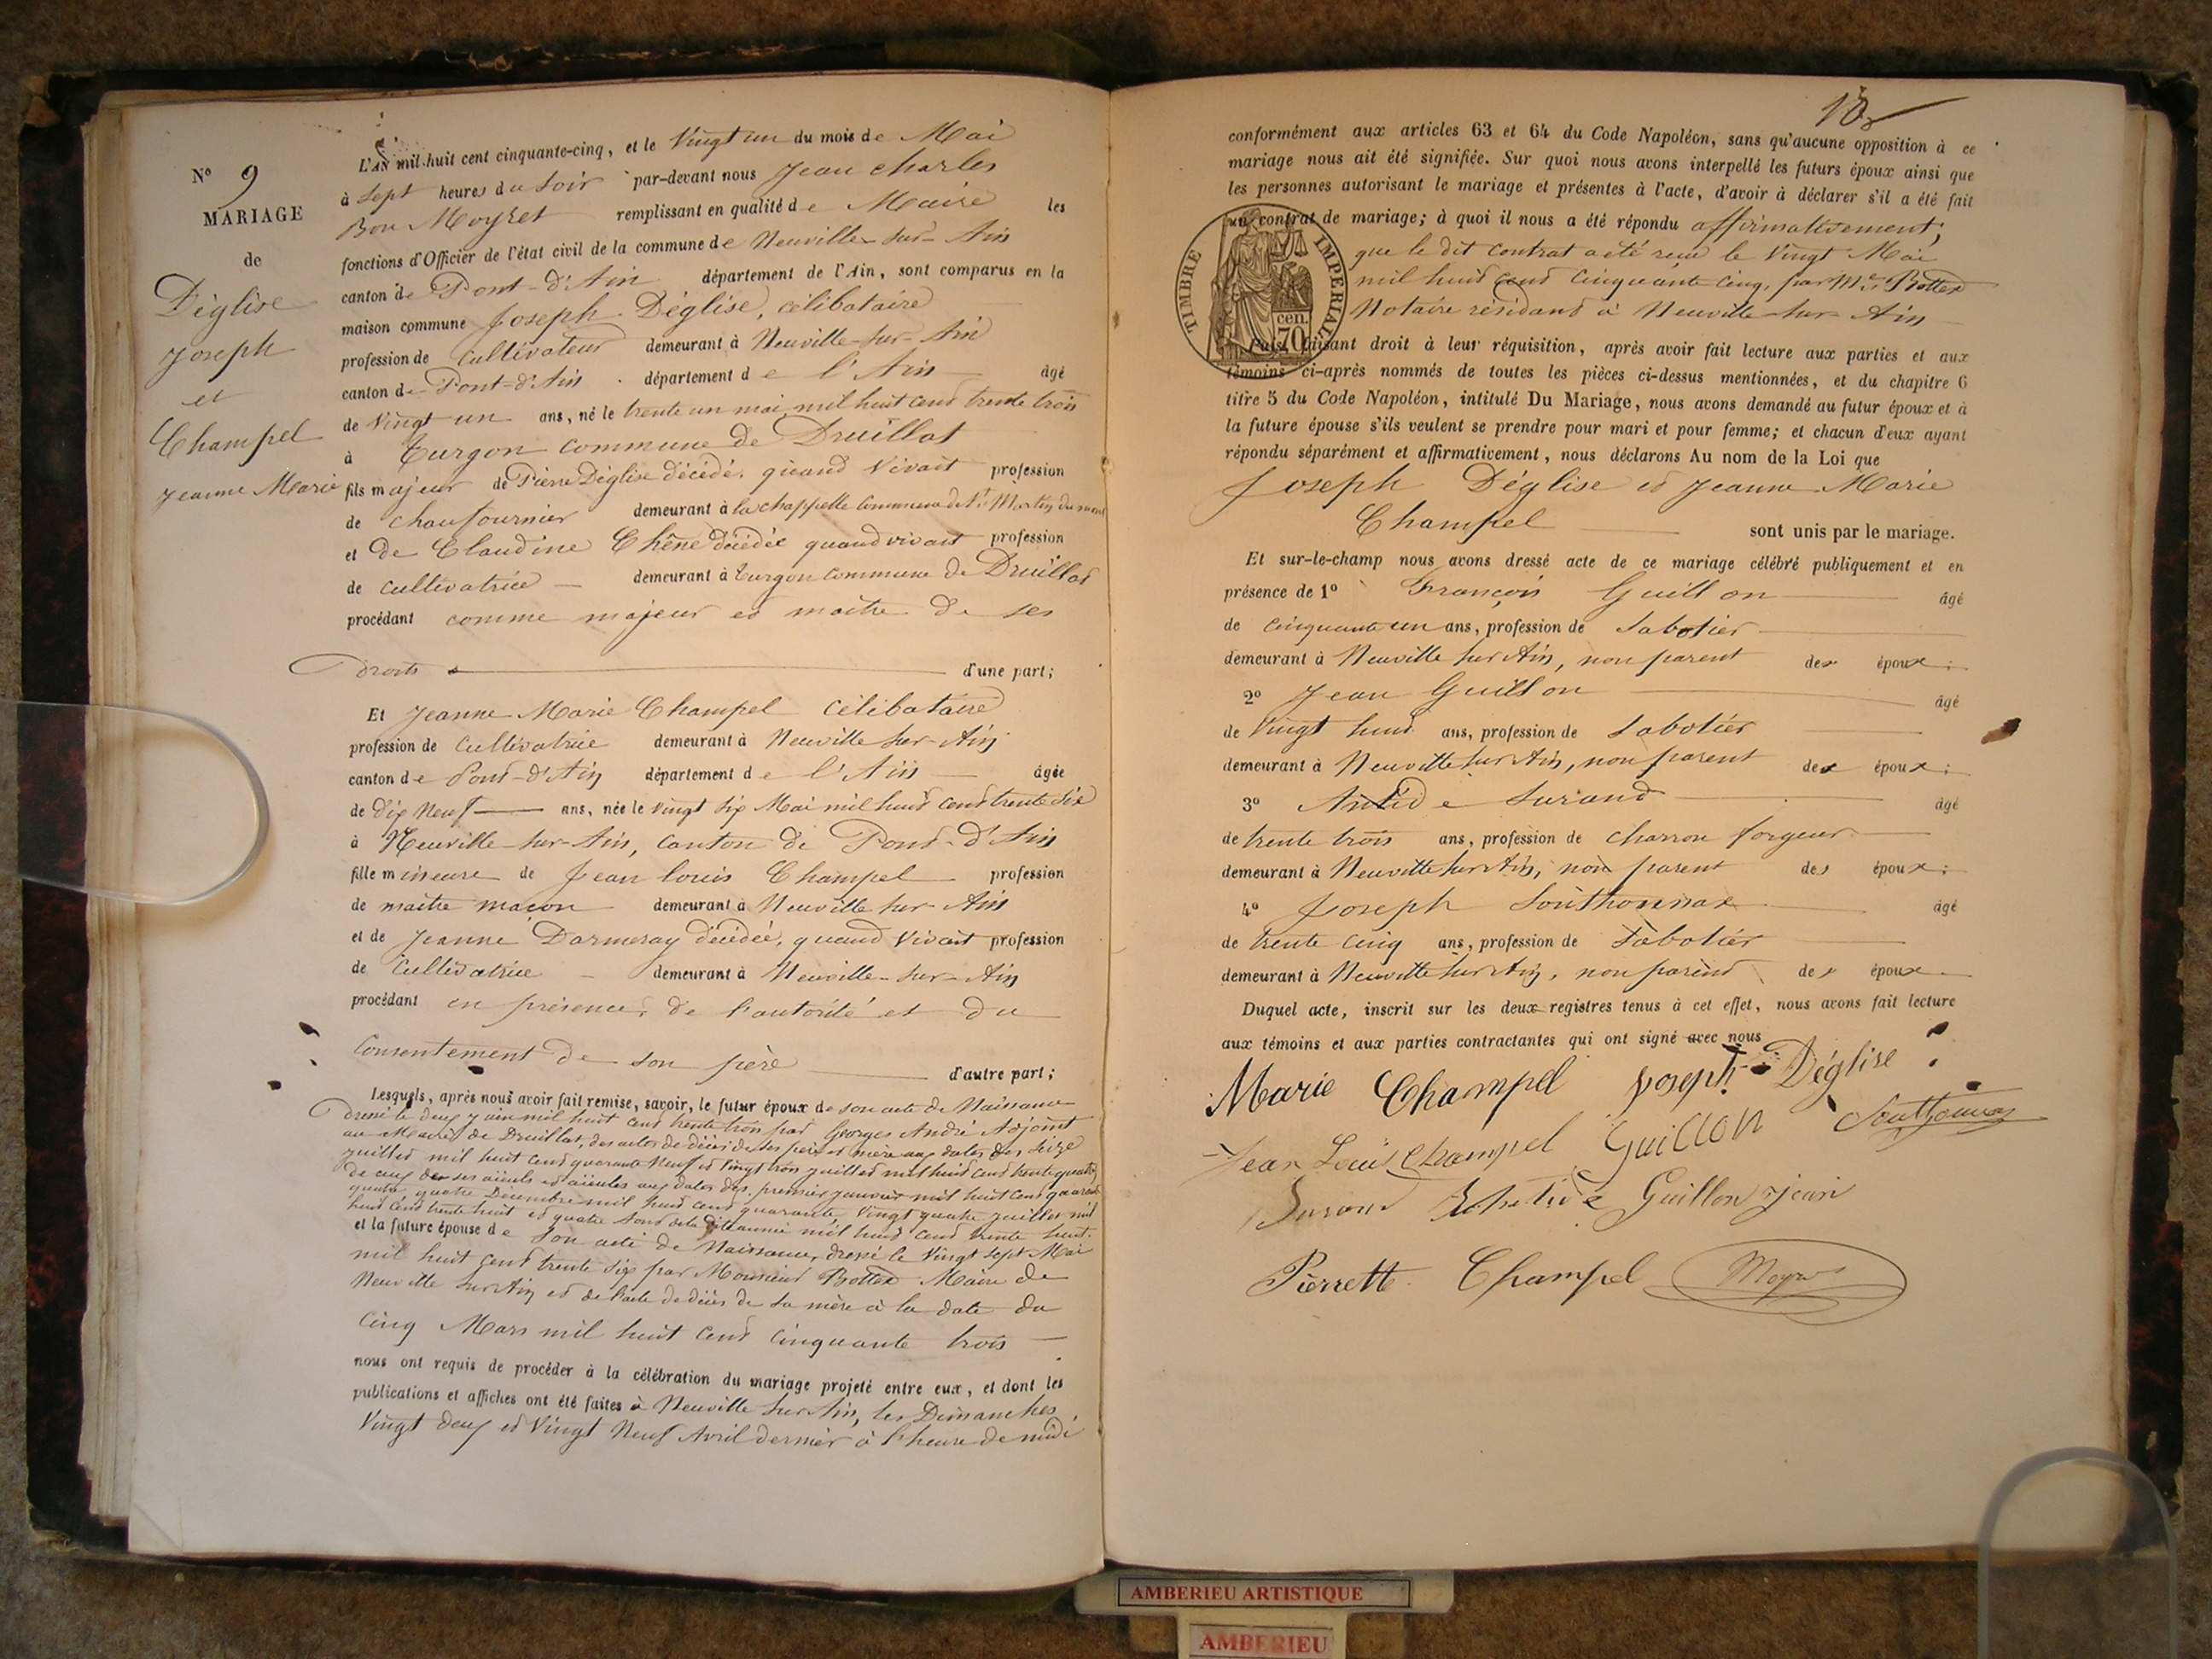 N° 9
MARIAGE
de
Déglise
Joseph
et
Champel
Jeanne Marie
L'AN mil-huit cent cinquante-cinq, et le Vingt un du mois de Mai
à Sept heures du Soir par-devant nous Jean Charles
Bon Moyret remplissant en qualité de Maire les
fonctions d'Officier de l'état civil de la commune de Neuville-sur-Ain
canton de Pont-d'Ain département de l'Ain, sont comparus en la
maison commune Joseph Déglise, célibataire
profession de Cultivateur demeurant à Neuville-sur-Ain
canton de Pont-d'Ain département de l'Ain âgé
de Vingt un ans, né le trente un mai mil huit cent trente trois
à Turgon commune de Druillat
fils majeur de Pierre Déglise décédé, quand vivait profession
de Chaufournier demeurant à la chappelle commune de St Martin du mont
et de Claudine Chêne décédée quand vivait profession
de cultivatrice demeurant à Turgon commune de Druillat
procédant comme majeur et maître de ses
droits d'une part;
Et Jeanne Marie Champel célibataire
profession de Cultivatrice demeurant à Neuville sur-Ain
canton de Pont-d'Ain département de l'Ain âgée
de dix Neuf ans, née le vingt six Mai mil huit cent trente six
à Neuville-sur-Ain, canton de Pont-d'Ain
fille mineure de Jean Louis Champel profession
de maître maçon demeurant à Neuville sur Ain
et de Jeanne Darmeray décédée, quand vivait profession
de Cultivatrice demeurant à Neuville-sur-Ain
procédant en présence, de l'autorité et du
Consentement de son père d'autre part;
Lesquels, après nous avoir fait remise, savoir, le futur époux de son acte de Naissance
dressé le deux juin mil huit cent trente trois par Georges André Adjoint
au Maire de Druillat, des actes de décès de ses père et mère aux dates des seize
juillet mil huit cent quarante neuf et vingt trois juillet mil huit cent trente quatre,
de ceux de ses aïeuls et aïeules aux dates des premier janvier mil huit cent quarante
quatre, quatre Décembre mil huit cent quarante, vingt quatre juillet mil
huit cent trente huit et quatre dite année mil huit cent trente huit.
et la future épouse de Son acte de Naissance, dressé le Vingt sept Mai
mil huit cent trente six par Monsieur Bottex Maire de
Neuville sur Ain et de l'acte de décès de sa mère à la date du
Cinq Mars mil huit cent cinquante trois
nous ont requis de procéder à la célébration du mariage projeté entre eux, et dont les
publications et affiches ont été faites à Neuville sur Ain, les Dimanches
Vingt deux et Vingt Neuf Avril dernier à l'heure de midi
conformément aux articles 63 et 64 du Code Napoléon, sans qu'aucune opposition à ce
mariage nous ait été signifiée. Sur quoi nous avons interpellé les futurs époux ainsi que
les personnes autorisant le mariage et présentes à l'acte, d'avoir à déclarer s'il a été fait
un contrat de mariage; à quoi il nous a été répondu affirmativement,
que le dit contrat a été reçu le Vingt Mai
mil huit cent cinquante cinq, par Me Bottex
Notaire résidant à Neuville-sur-Ain
TIMBRE IMPERIAL
cen.
70
Puis, faisant droit à leur réquisition, après avoir fait lecture aux parties et aux
témoins ci-après nommés de toutes les pièces ci-dessus mentionnées, et du chapitre 6
titre 5 du Code Napoléon, intitulé Du Mariage, nous avons demandé au futur époux et à
la future épouse s'ils veulent se prendre pour mari et pour femme; et chacun d'eux ayant
répondu séparément et affirmativement, nous déclarons Au nom de la Loi que
Joseph Déglise et Jeanne Marie
Champel sont unis par le mariage.
Et sur-le-champ nous avons dressé acte de ce mariage célébré publiquement et en
présence de 1° François Guillon âgé
de cinquante un ans, profession de Sabotier
demeurant à Neuville sur Ain, non parent des époux;
2° Jean Guillon âgé
de Vingt huit ans, profession de Sabotier
demeurant à Neuville sur Ain, non parent des époux;
3° Antide Surand âgé
de trente trois ans, profession de charron forgeur
demeurant à Neuville sur Ain, non parent des époux;
4° Joseph Southonnax âgé
de trente cinq ans, profession de Sabotier
demeurant à Neuville sur Ain, non parent des époux
Duquel acte, inscrit sur les deux registres tenus à cet effet, nous avons fait lecture
aux témoins et aux parties contractantes qui ont signé avec nous
Marie Champel Joseph Déglise
Jean Loui Champel Guillon Southonnax
Surand Guillon Jean
Pierrette Champel Moyret
AMBERIEU ARTISTIQUE
AMBERIEU